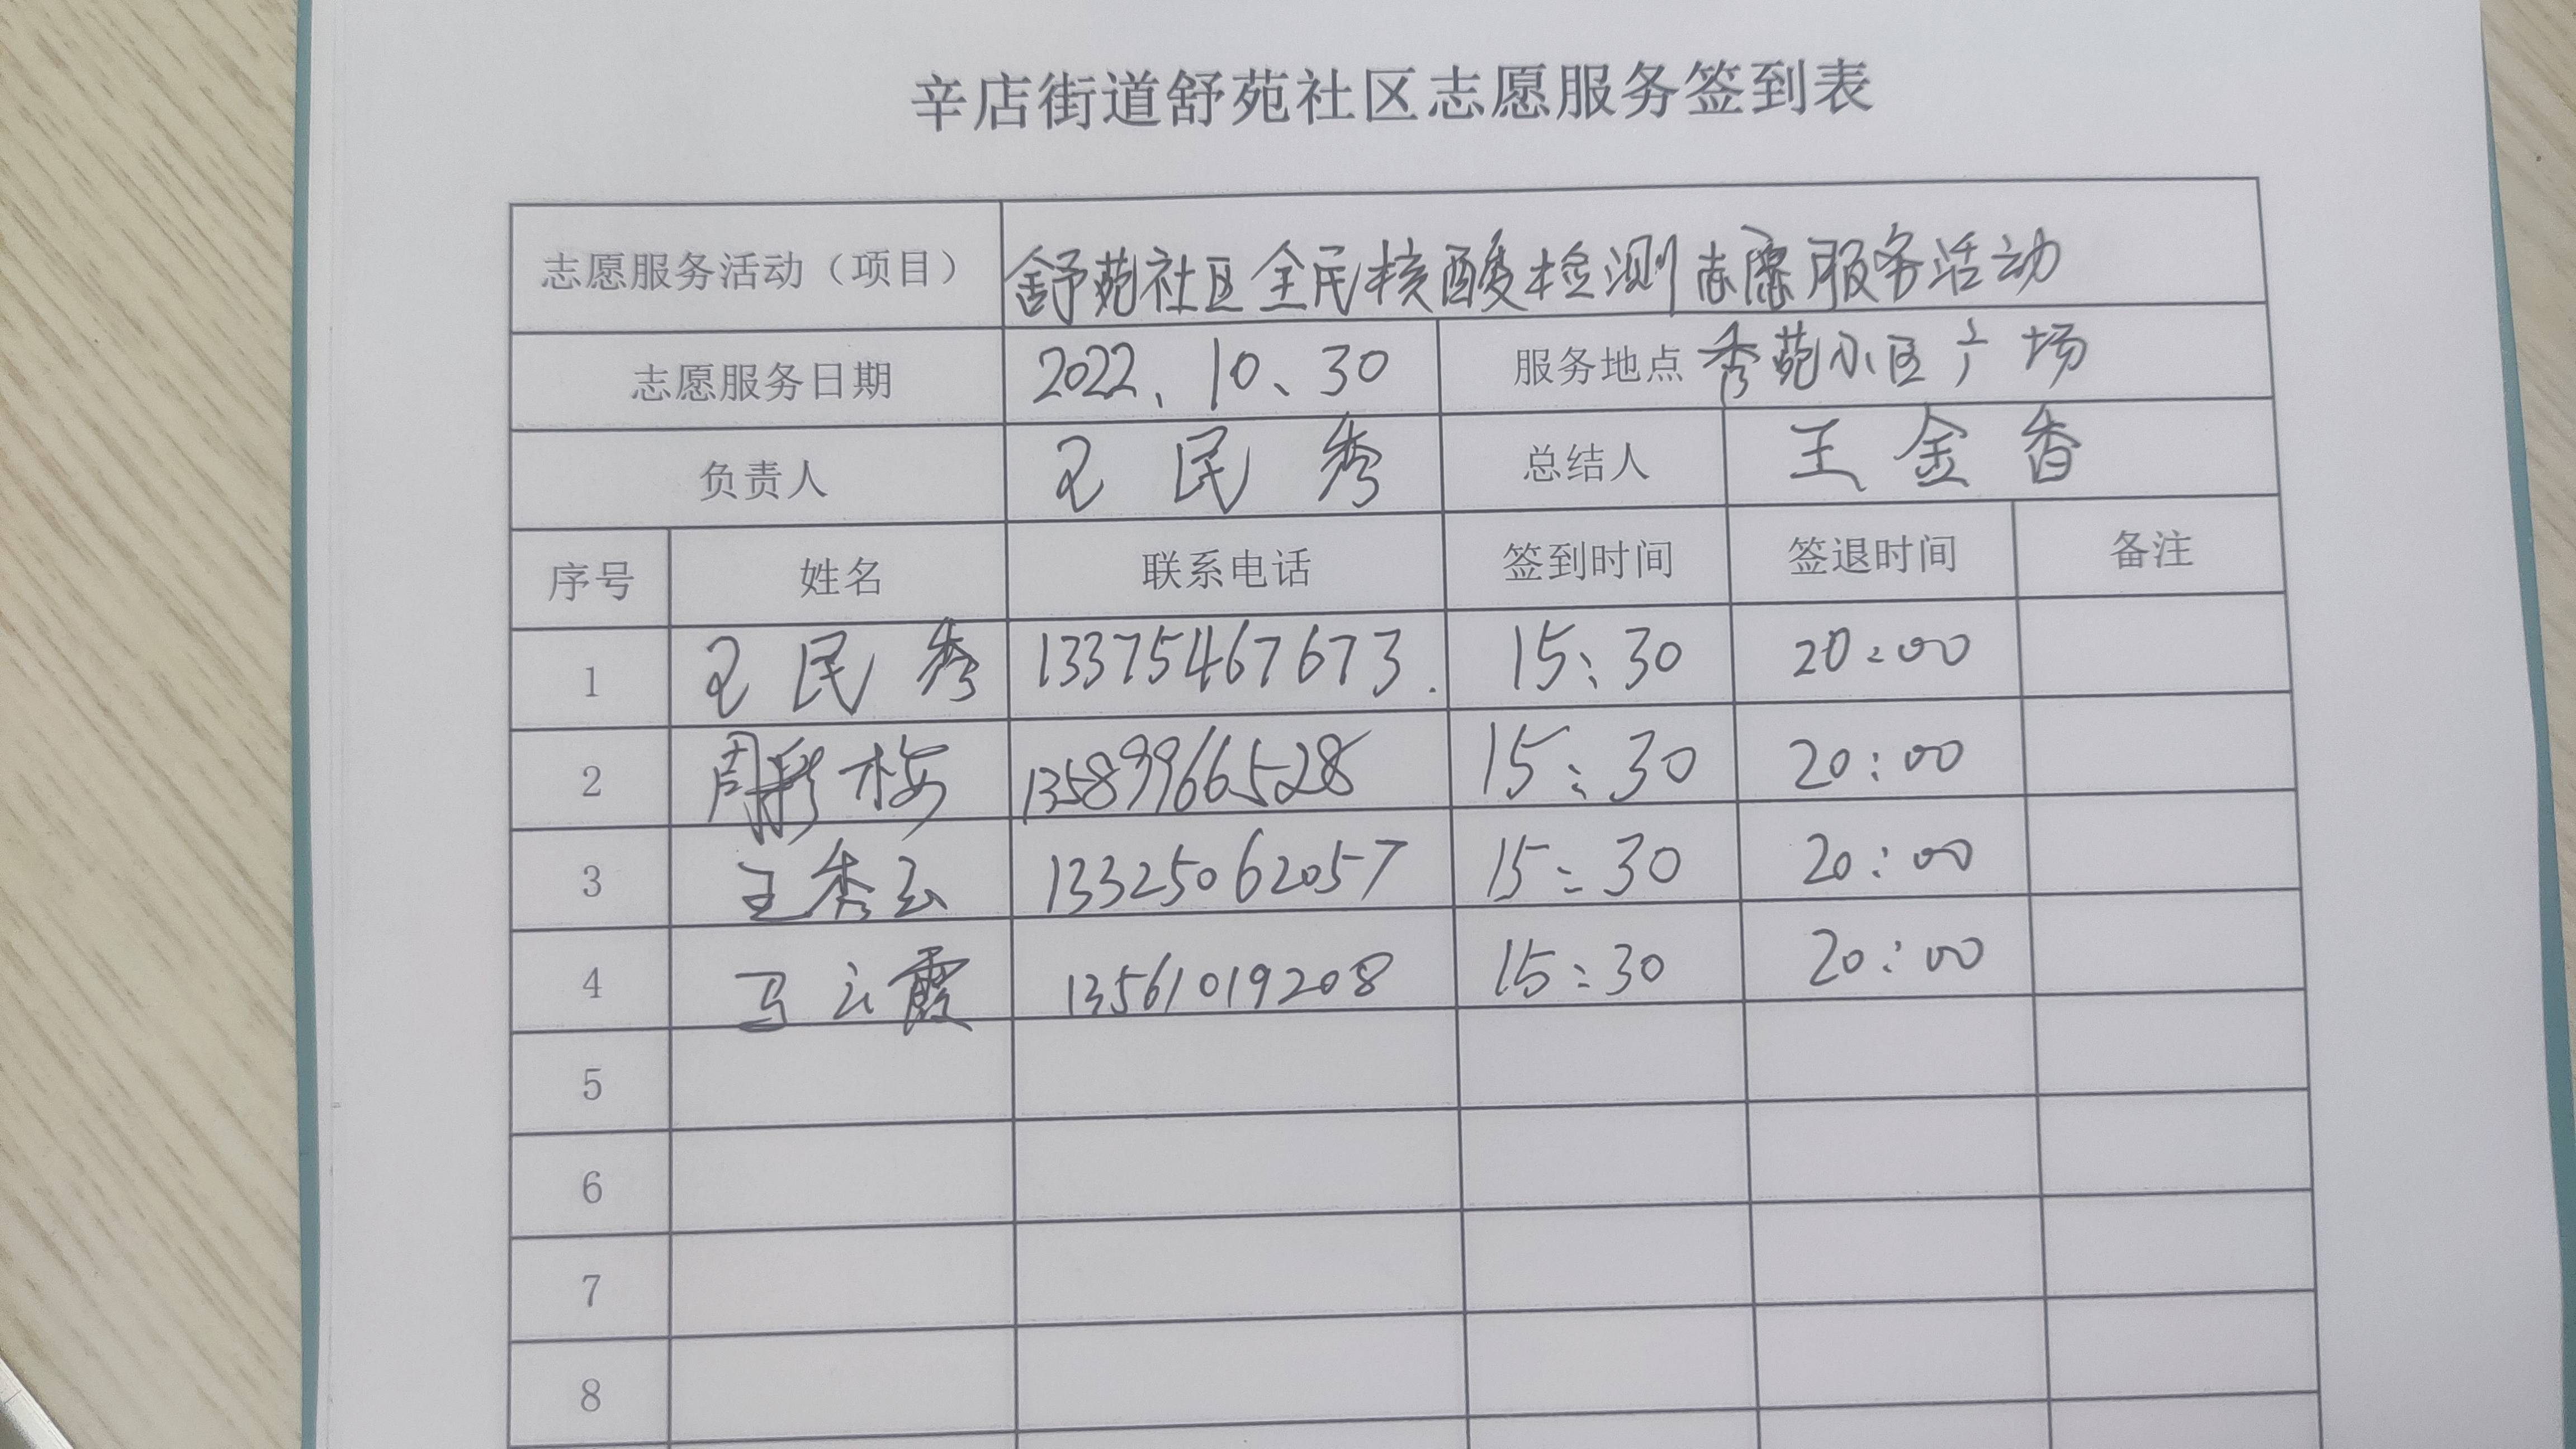 辛店街道舒苑社区志愿服务签到表
志愿服务活动（项目） 舒苑社区全民核酸检测志愿服务活动
志愿服务日期 2022、10、30 服务地点 秀苑小区广场
负责人 王民秀 总结人 王金香
序号 姓名 联系电话 签到时间 签退时间 备注
1 王民秀 13375467673. 15:30 20:00
2 周彩梅 13589966528 15:30 20:00
3 王秀云 13325062057 15:30 20:00
4 马云霞 13561019208 15:30 20:00
5
6
7
8